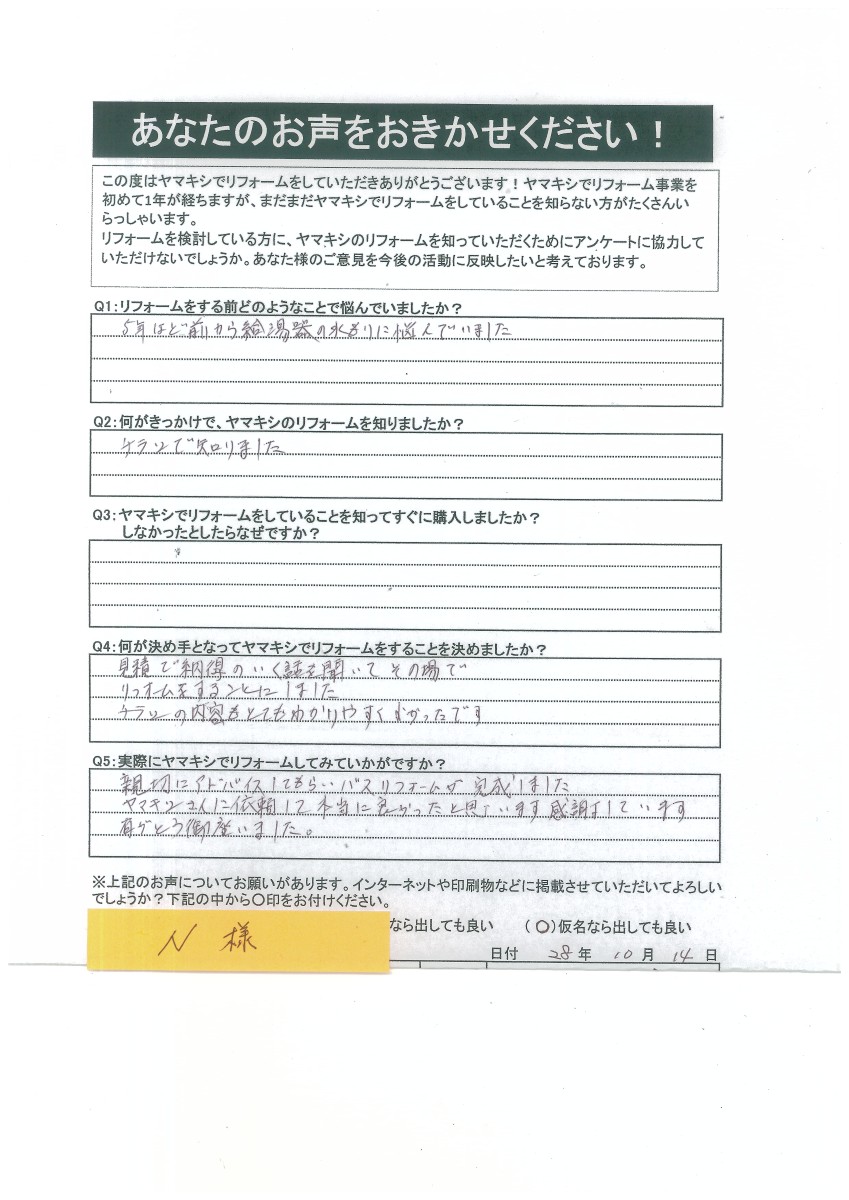 あなたのお声をおきかせください！
この度はヤマキシでリフォームをしていただきありがとうございます！ヤマキシでリフォーム事業を
初めて1年が経ちますが、まだまだヤマキシでリフォームをしていることを知らない方がたくさんい
らっしゃいます。
リフォームを検討している方に、ヤマキシのリフォームを知っていただくためにアンケートに協力して
いただけないでしょうか。あなた様のご意見を今後の活動に反映したいと考えております。
Q1：リフォームをする前どのようなことで悩んでいましたか？
5年ほど前から給湯器の水もりに悩んでいました
Q2：何がきっかけで、ヤマキシのリフォームを知りましたか？
チラシで知りました
Q3：ヤマキシでリフォームをしていることを知ってすぐに購入しましたか？
しなかったとしたらなぜですか？
Q4：何が決め手となってヤマキシでリフォームをすることを決めましたか？
見積で納得のいく話を聞いてその場で
リフォームをすることにしました
チラシの内容もとてもわかりやすくよかったです
Q5：実際にヤマキシでリフォームしてみていかがですか？
親切にアドバイスしてもらいバスリフォームが完成しました
ヤマキシさんに依頼して本当に良かったと思います感謝しています
有がとう御座いました。
※上記のお声についてお願いがあります。インターネットや印刷物などに掲載させていただいてよろしい
でしょうか？下記の中から〇印をお付けください。
なら出しても良い （〇）仮名なら出しても良い
N 様
日付 28年 10月 14日